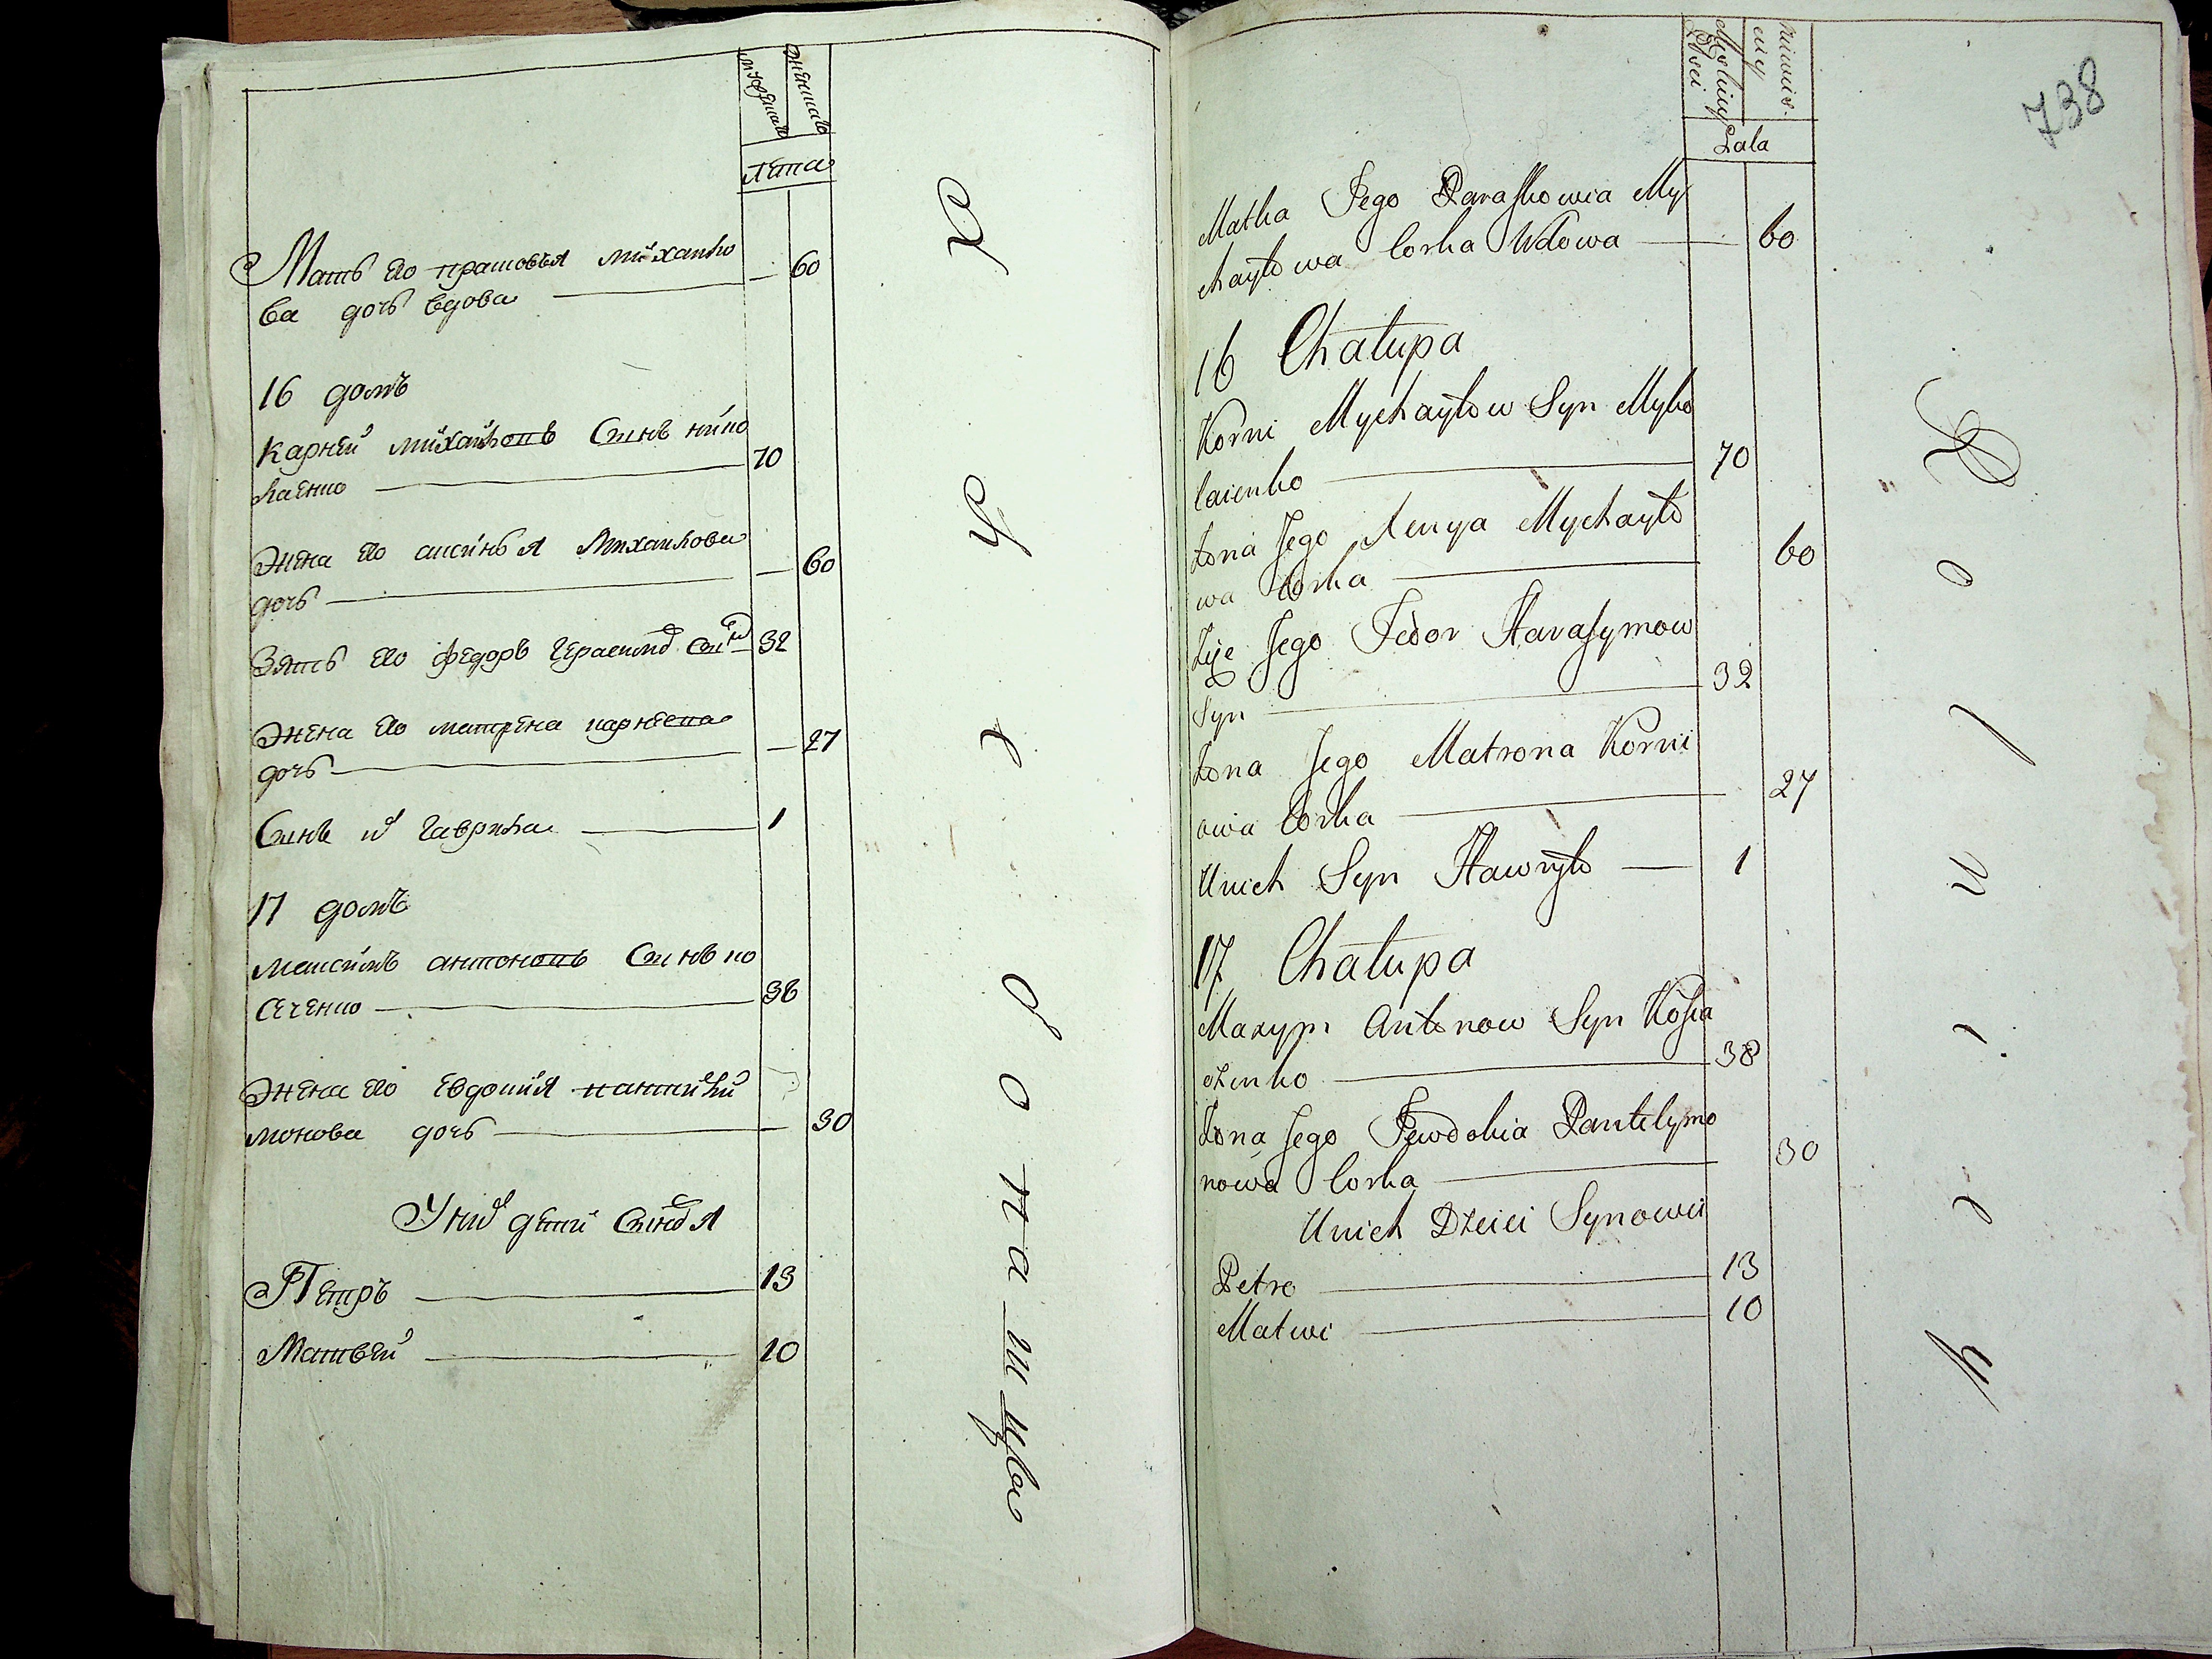 мужеска
женска
лѣта
Мать его прасковья михайло
ва дочь вдова — 60
16 домъ
Карнѣй михайловъ Сынъ нико
лаенко — 70
Жена его аксинья Михайлова
дочь — 60
Зять его федоръ Герасимовъ сынъ 32
Жена его матрена карнеева
дочь — 27
Сынъ ихъ гаврила — 1
17 домъ
максимъ антоновъ Сынъ ко
сеченко — 38
Жена его Евдокия пантили
монова дочь — 30
У них дети Синовья
Петръ — 13
Матвей — 10
738
Lata
Matka Jego Paraskowia My
chayłowa Corka Wdowa — 60
16 Chałupa
Korni Mychayłow Syn Myko
laienko — 70
Żona Jego Xenya Mychayło
wa Corka — 60
Zięć Jego Fedor Harasymow
Syn — 32
Żona Jego Matrona Korni
owa Corka — 27
Unich Syn Hawryło — 1
17 Chałupa
Maxym Antonow Syn Kosia
czenko — 38
Żona Jego Jewdokia Pantelymo
nowa Corka — 30
Unich Dzieci Synowie
Petro — 13
Matwi — 10